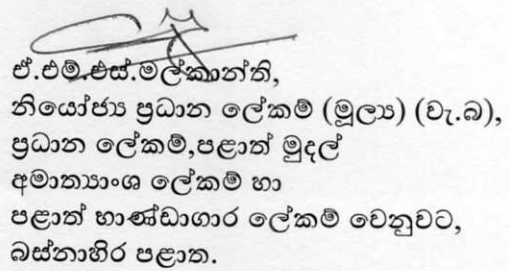 ඒ.එම්.එස්.මල්කාන්ති,
නියෝජ්‍ය ප්‍රධාන ලේකම් (මූල්‍ය) (වැ.බ),
ප්‍රධාන ලේකම්,පළාත් මුදල්
අමාත්‍යාංශ ලේකම් හා
පළාත් භාණ්ඩාගාර ලේකම් වෙනුවට,
බස්නාහිර පළාත.